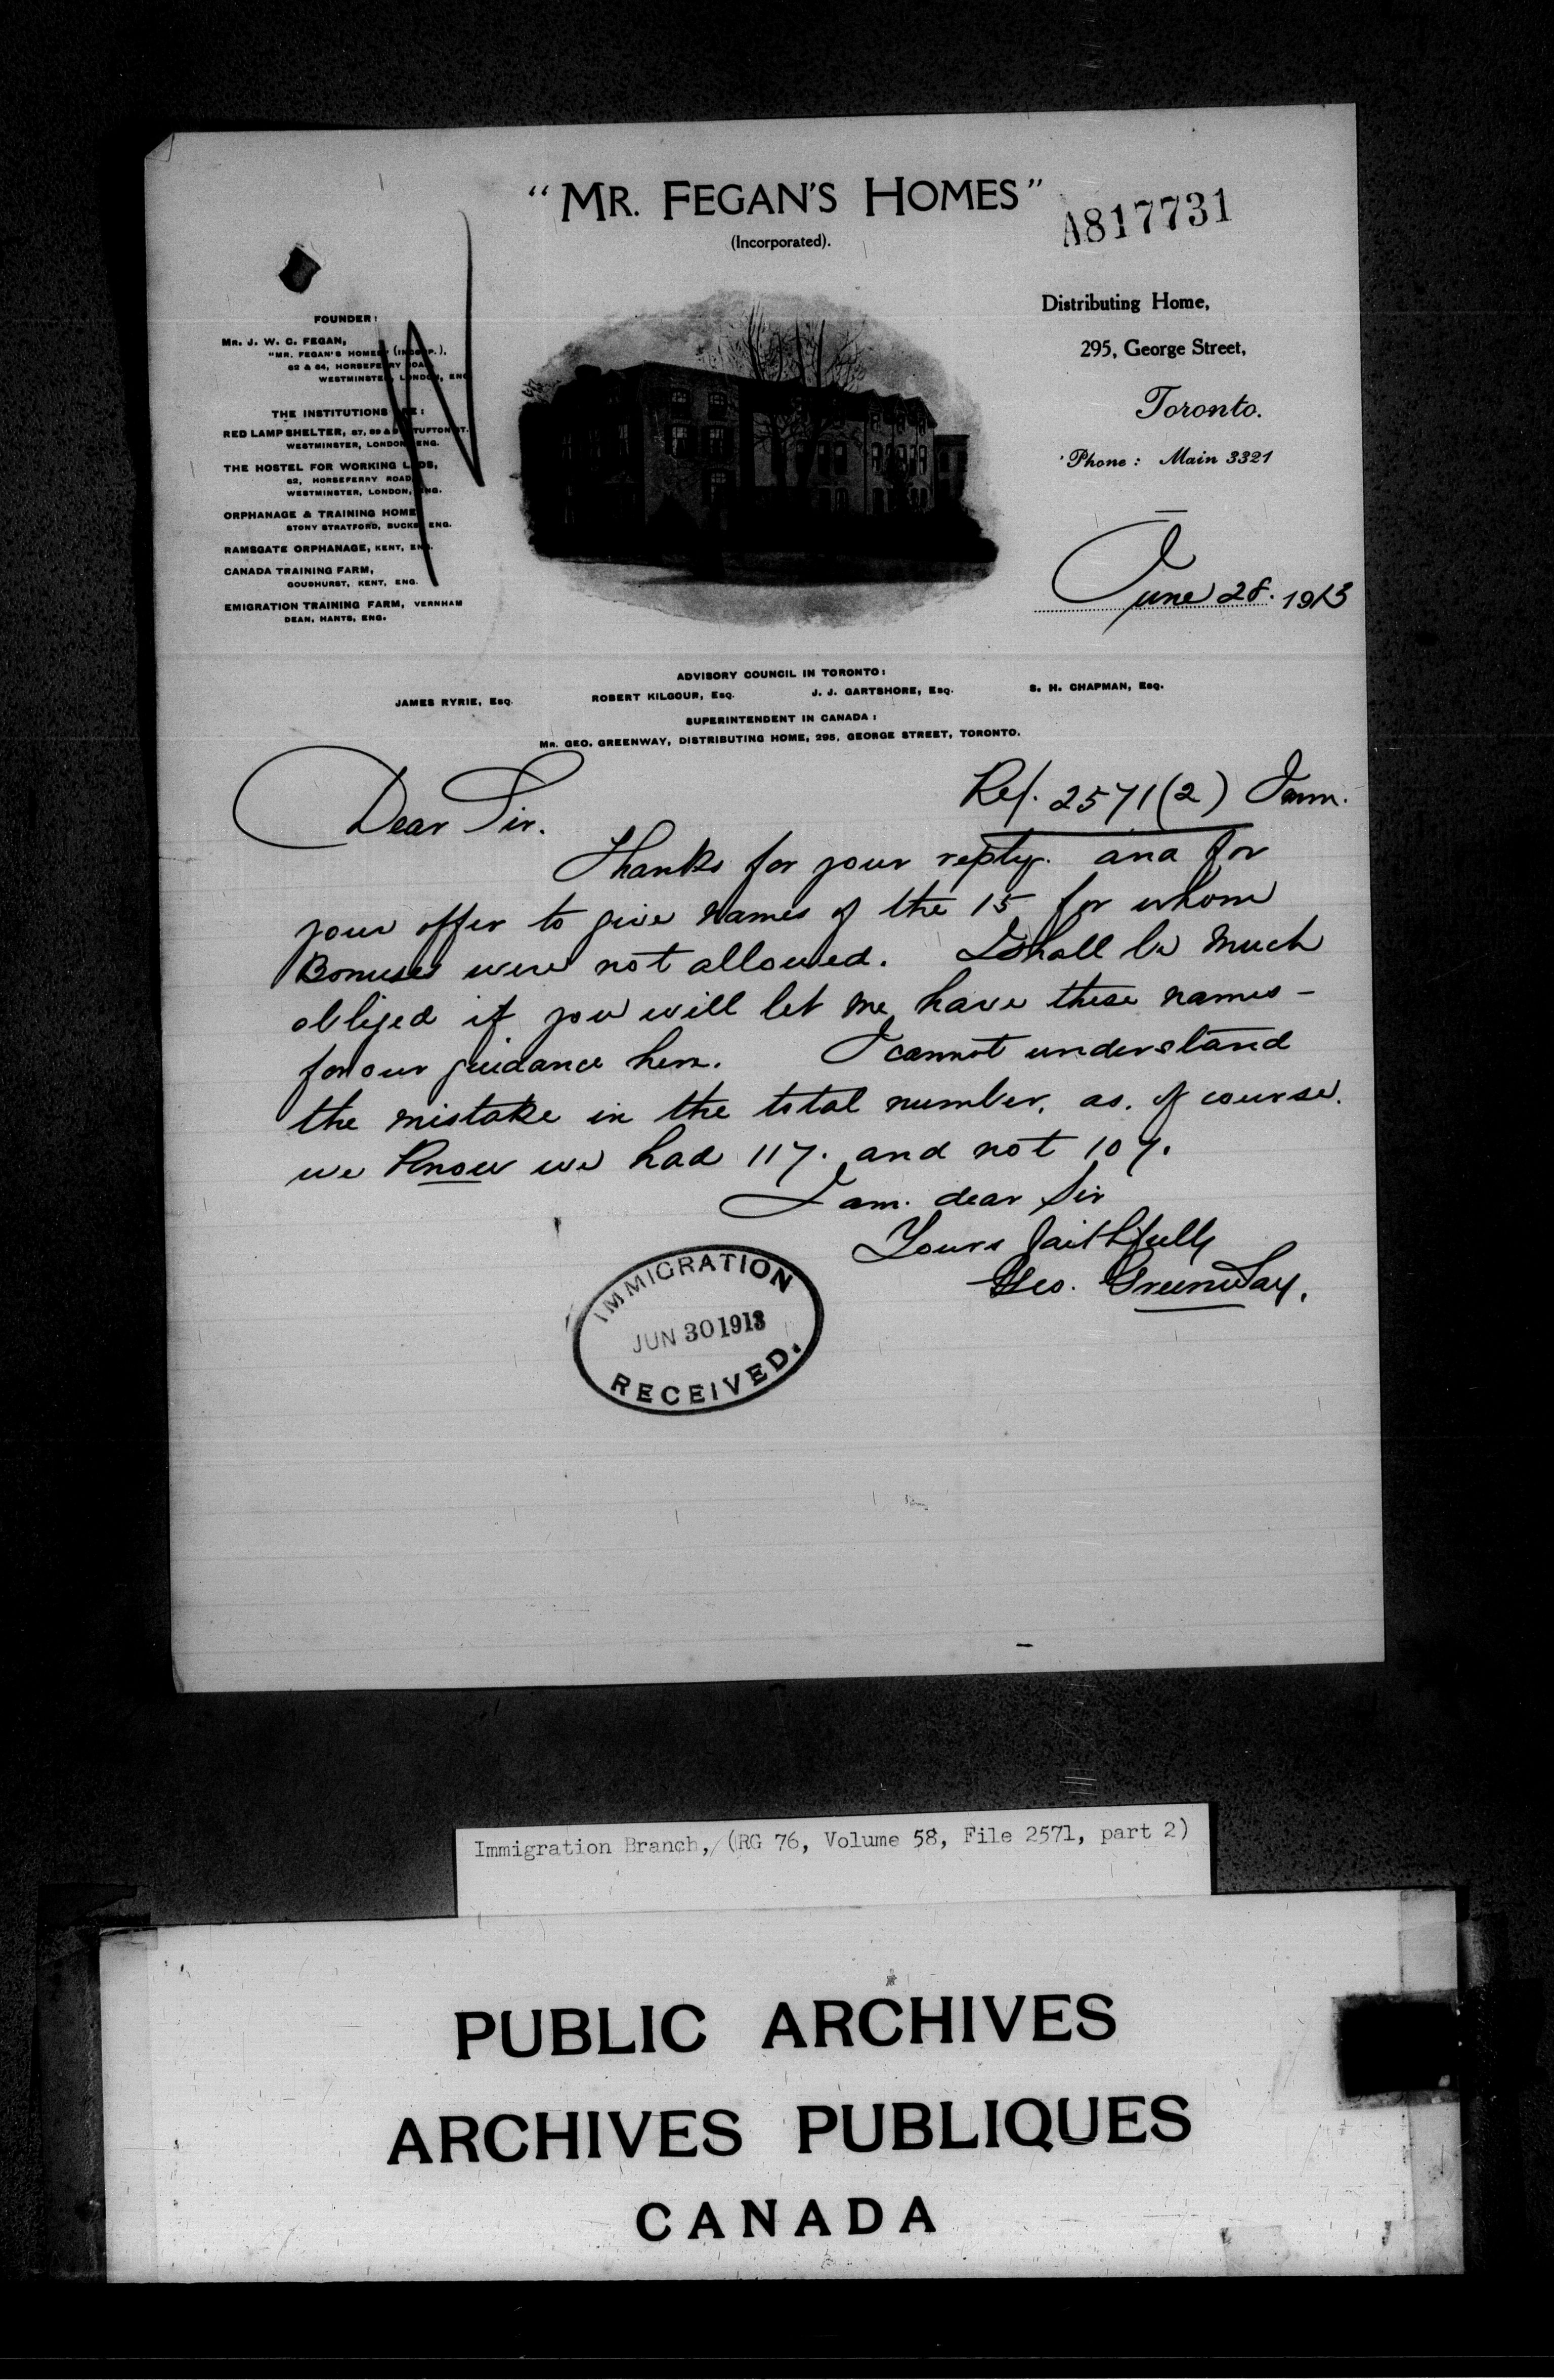 "MR. FEGAN'S HOMES"
(Incorporated).
A817731
FOUNDER:
MR. J. W. C. FEGAN,
"MR. FEGAN'S HOMES" (INCORP.),
62 & 64, HORSEFERRY ROAD,
WESTMINSTER, LONDON, ENG.
THE INSTITUTIONS ARE:
RED LAMP SHELTER, 67, 69 & TUFTON ST.
WESTMINSTER, LONDON, ENG.
THE HOSTEL FOR WORKING LADS,
62, HORSEFERRY ROAD,
WESTMINSTER, LONDON, ENG.
ORPHANAGE & TRAINING HOME,
STONY STRATFORD, BUCKS, ENG.
RAMSGATE ORPHANAGE, KENT, ENG.
CANADA TRAINING FARM,
GOUDHURST, KENT, ENG.
EMIGRATION TRAINING FARM, VERNHAM
DEAN, HANTS, ENG.
Distributing Home,
295, George Street,
Toronto.
Phone: Main 3321
June 28. 1913
ADVISORY COUNCIL IN TORONTO:
JAMES RYRIE, Esq. ROBERT KILGOUR, Esq. J. J. GARTSHORE, Esq. S. H. CHAPMAN, Esq.
SUPERINTENDENT IN CANADA:
MR. GEO. GREENWAY, DISTRIBUTING HOME, 295, GEORGE STREET, TORONTO.
Ref. 2571(2) Imm.
Dear Sir.
Thanks for your reply. and for
your offer to give names of the 15 for whom
Bonuses were not allowed. I shall be much
obliged if you will let me have these names –
for our guidance here. I cannot understand
the mistake in the total number, as. of course.
we know we had 117. and not 107.
I am. dear Sir
Yours faithfully
Geo. Greenway.
IMMIGRATION
JUN 30 1913
RECEIVED.
Immigration Branch, (RG 76, Volume 58, File 2571, part 2)
PUBLIC ARCHIVES
ARCHIVES PUBLIQUES
CANADA